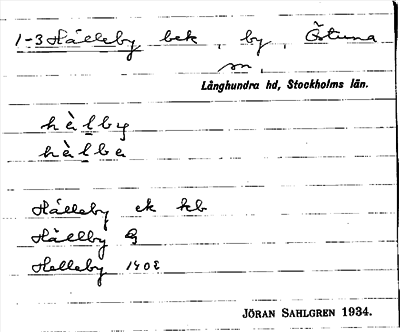 1-3 Hälleby bek , by , Östuna
sn ,
Långhundra hd, Stockholms län.
hälby
hälbe
Hälleby ek kb
Hällby G
Helleby 1408
JÖRAN SAHLGREN 1934.